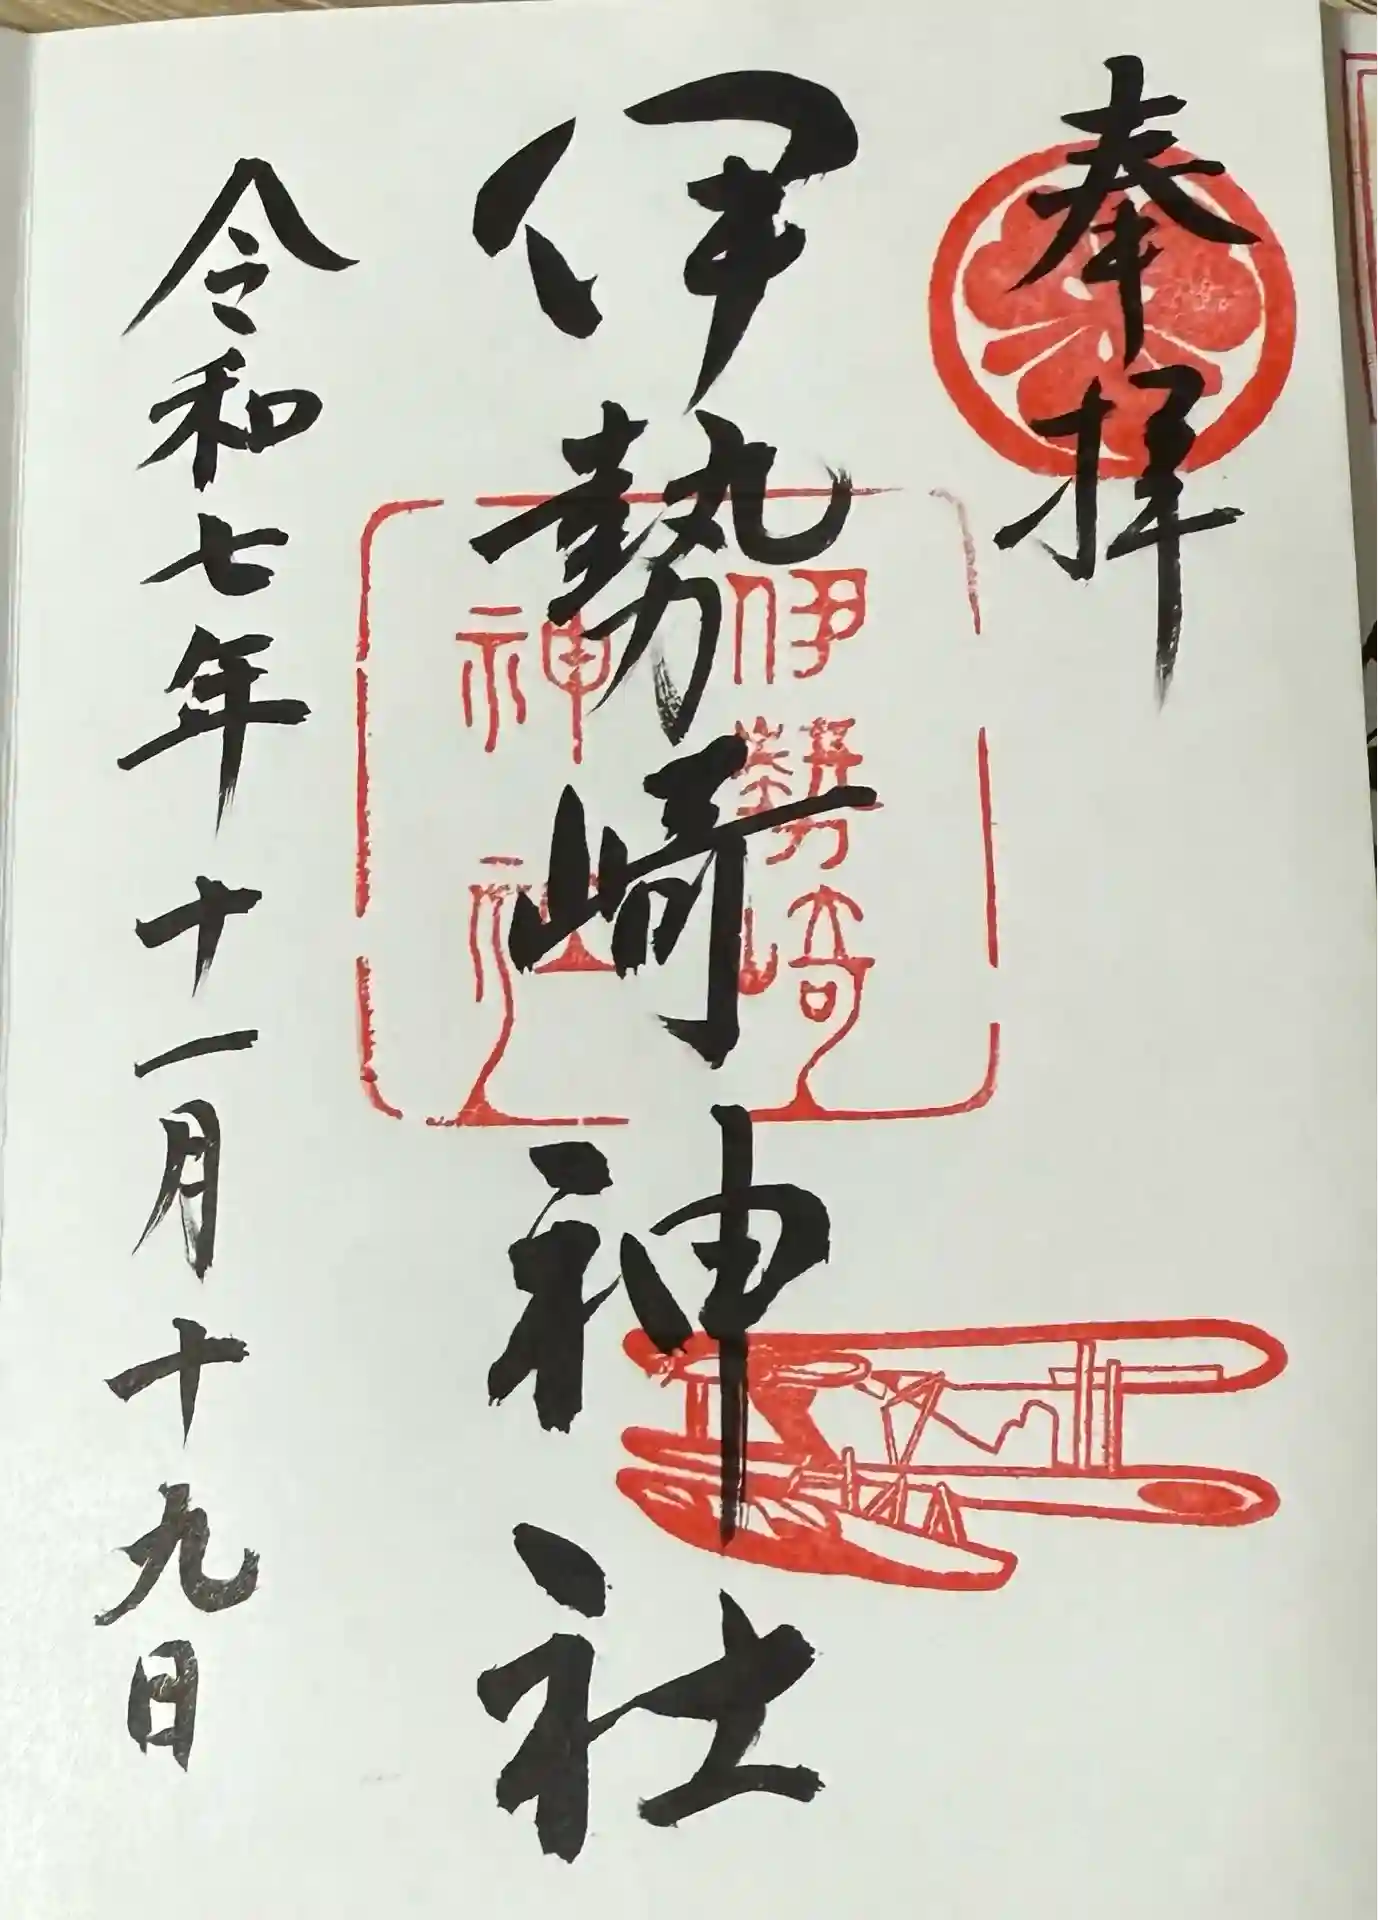 奉拝
伊勢崎神社
伊勢崎
神社
令和七年十一月十九日